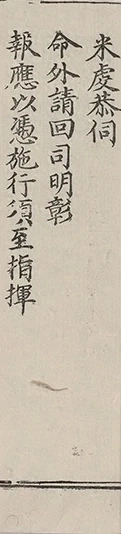 米處恭伺
命外請回司明彰
報應以憑施行須至指揮